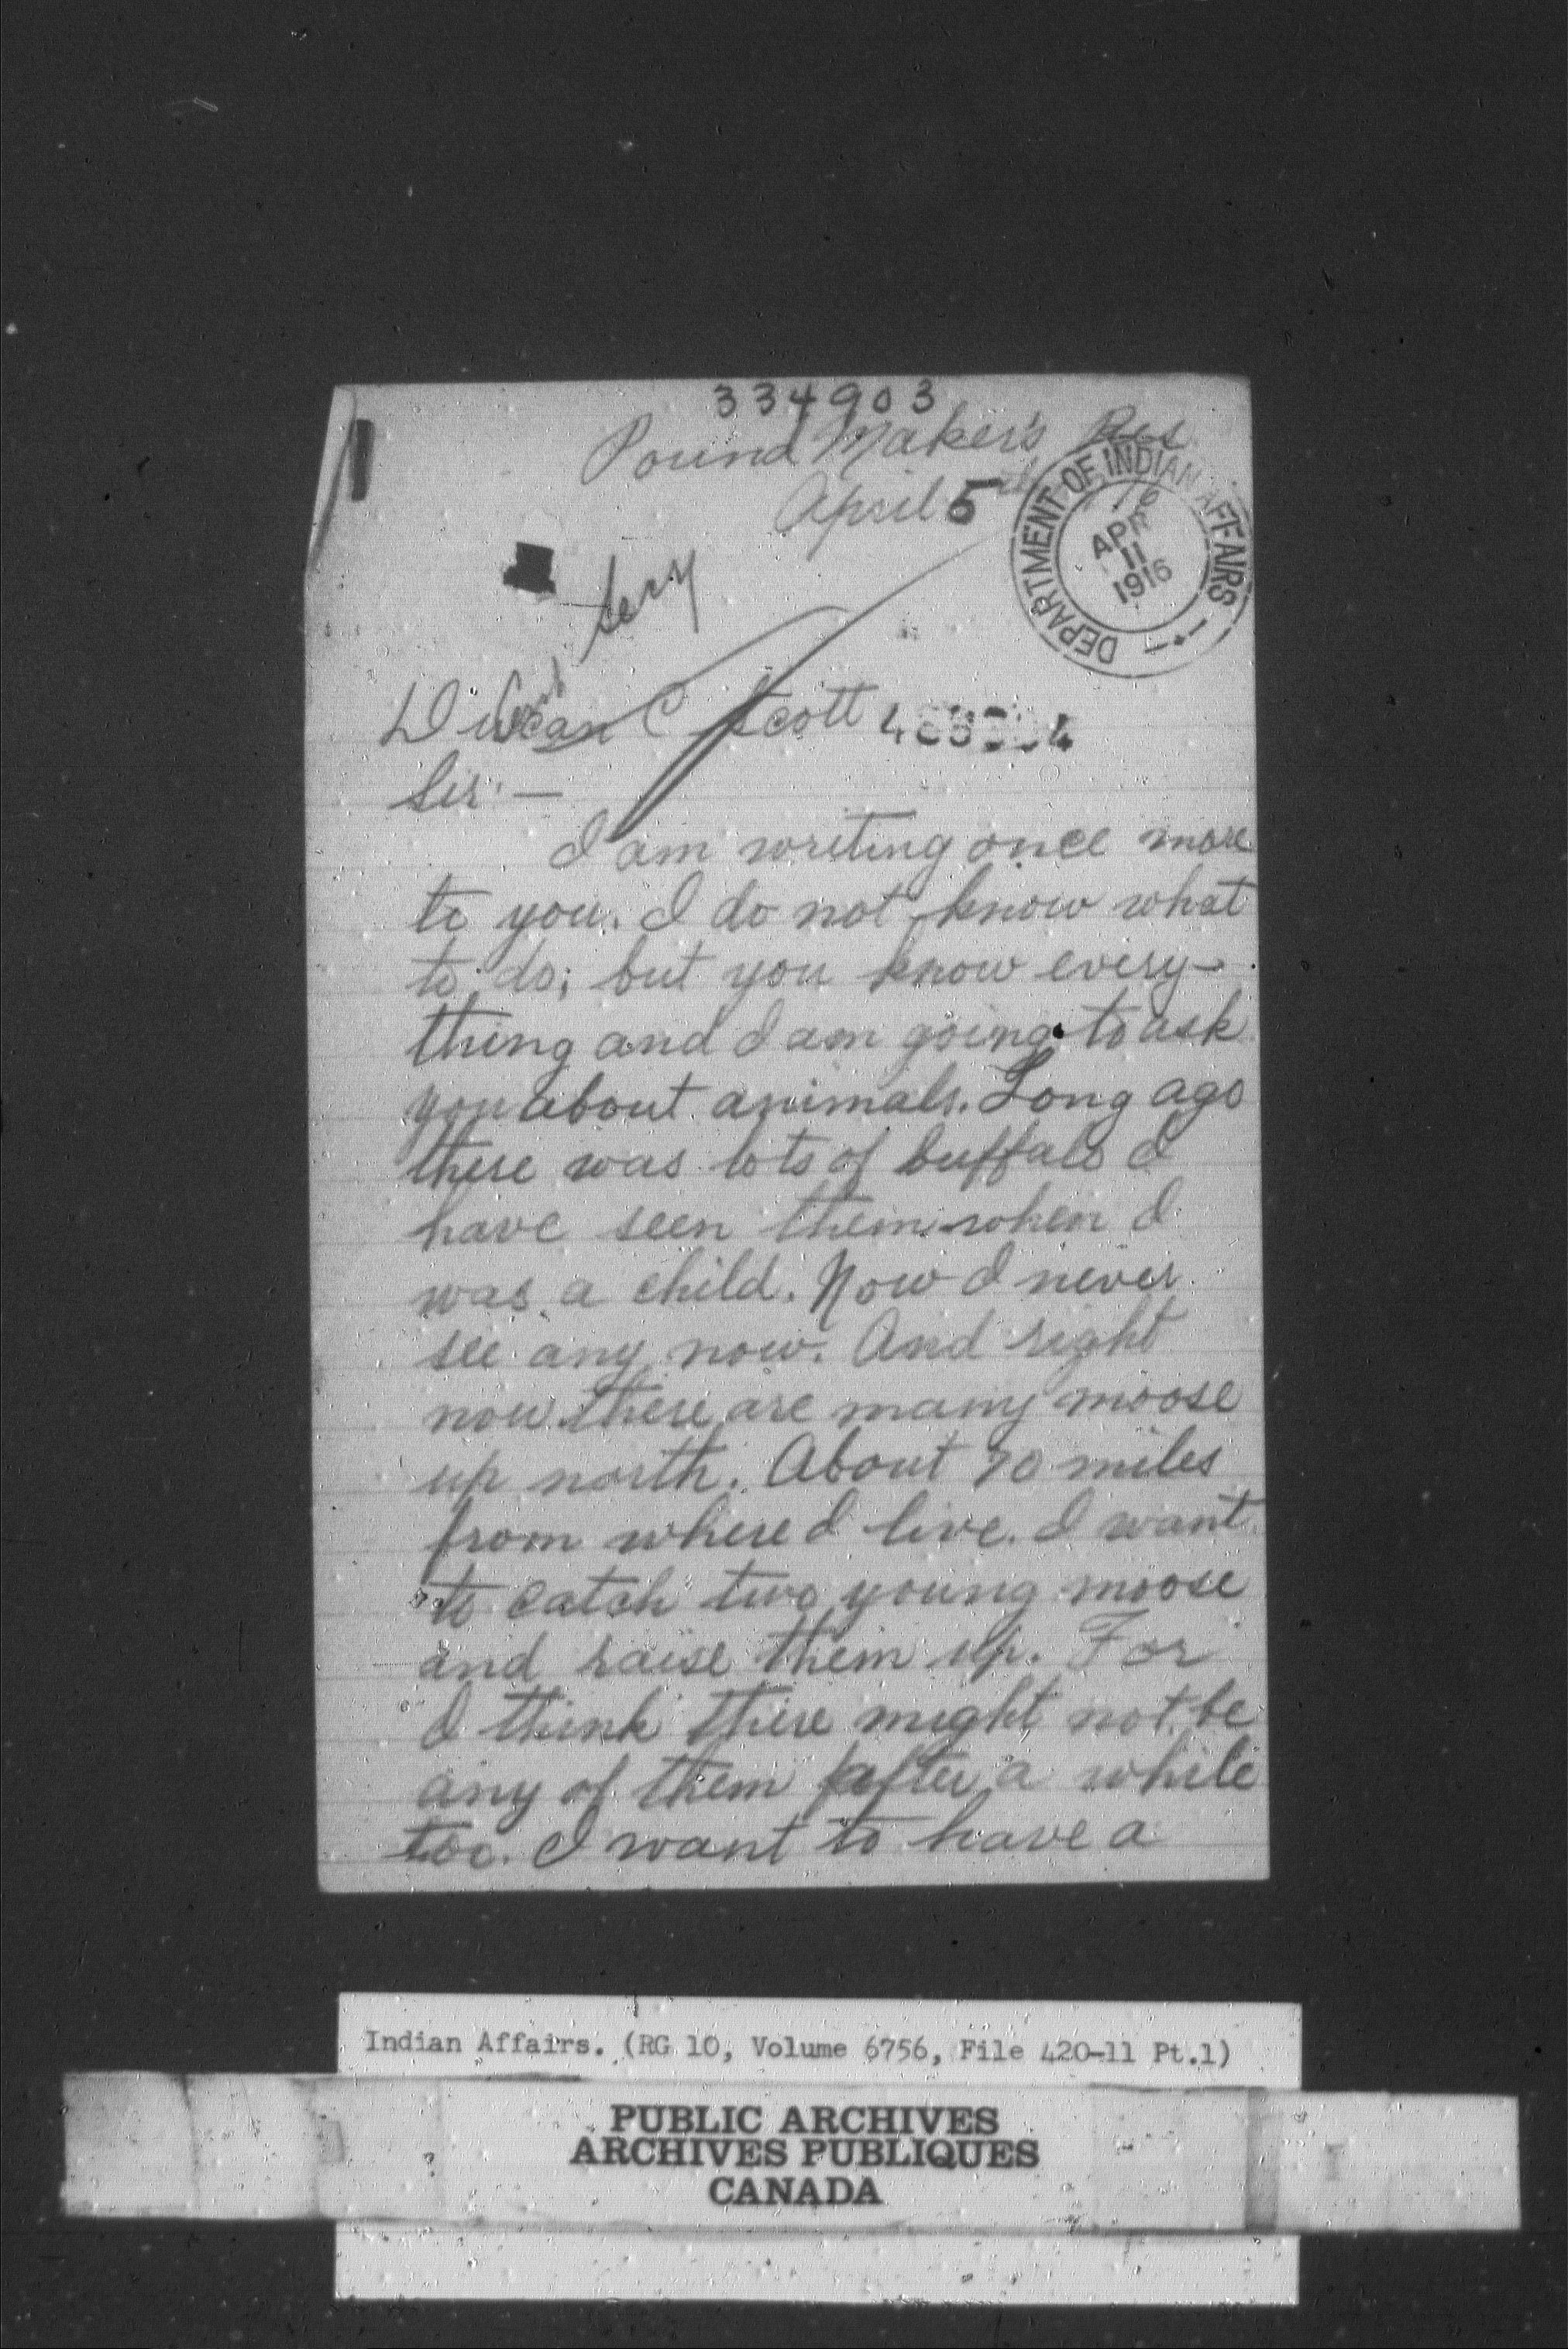 334903
Pound Maker's Res.
April 5th 16
DEPARTMENT OF INDIAN AFFAIRS
APR
11
1916
Duncan C Scott
Sir:—
I am writing once more
to you. I do not know what
to do; but you know every-
thing and I am going to ask
you about animals. Long ago
there was lots of buffalo I
have seen them when I
was a child. Now I never
see any now. And right
now there are many moose
up north. About 70 miles
from where I live. I want
to catch two young moose
and raise them up. For
I think there might not be
any of them after a while
too. I want to have a
Indian Affairs. (RG 10, Volume 6756, File 420-11 Pt.1)
PUBLIC ARCHIVES
ARCHIVES PUBLIQUES
CANADA